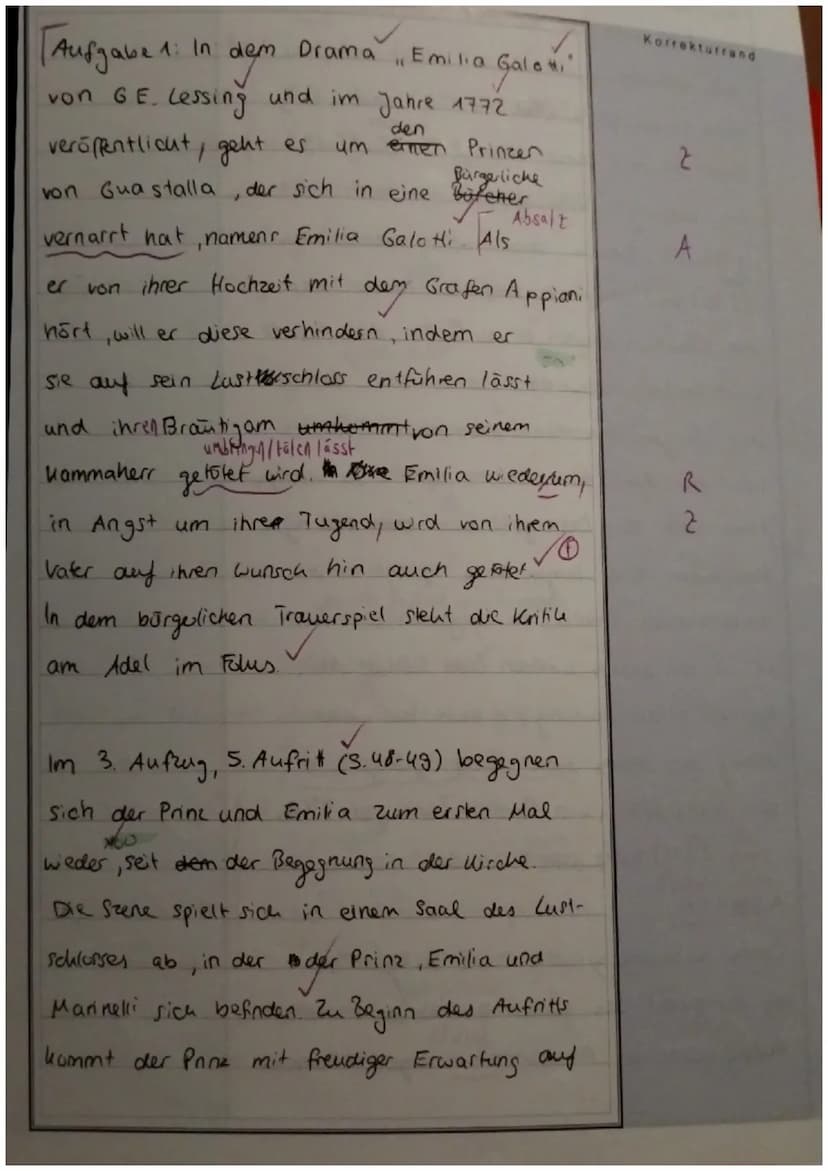 Korrekturrand
Aufgabe 1: In dem Drama „Emilia Galotti"
von G.E. Lessing und im Jahre 1772
den
veröffentlicht, geht es um einen Prinzen
Z
Bürgerliche
von Guastalla, der sich in eine
Absatz
vernarrt hat, namens Emilia Galotti. Als
A
er von ihrer Hochzeit mit dem Grafen Appiani
hört, will er diese verhindern, indem er
sie auf sein Lustschloss entführen lässt
und ihren Bräutigam umkommt von seinem
umbringen/töten lässt
Kammaherr getötet wird. Emilia wiederum,
R
in Angst um ihre Tugend, wird von ihrem
Z
Vater auf ihren Wunsch hin auch getötet.
In dem bürgelichen Trauerspiel steht die Kritik
am Adel im Fokus.
Im 3. Aufzug, 5. Aufritt (S. 48-49) begegnen
sich der Prinz und Emilia zum ersten Mal
wieder, seit dem der Begegnung in der Kirche.
Die Szene spielt sich in einem Saal des Lust-
schlosses ab, in der der Prinz, Emilia und
Marinelli sich befinden. Zu Beginn des Aufritts
kommt der Prinz mit freudiger Erwartung auf